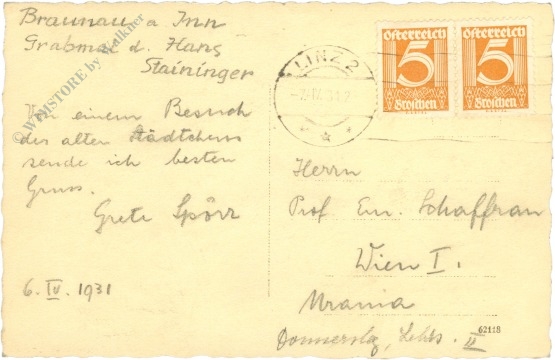 Braunau a Inn
Grabmal d. Hans
Staininger
Von einem Besuch
des alten Städtchens
sende ich besten
Gruss.
Grete Spörr
6. IV. 1931
©WHMSTORE by Walkner
LINZ 2
österreich
5
Groschen
österreich
5
Groschen
Herrn
Prof Em. Schaffran
Wien I.
Urania
II
62118